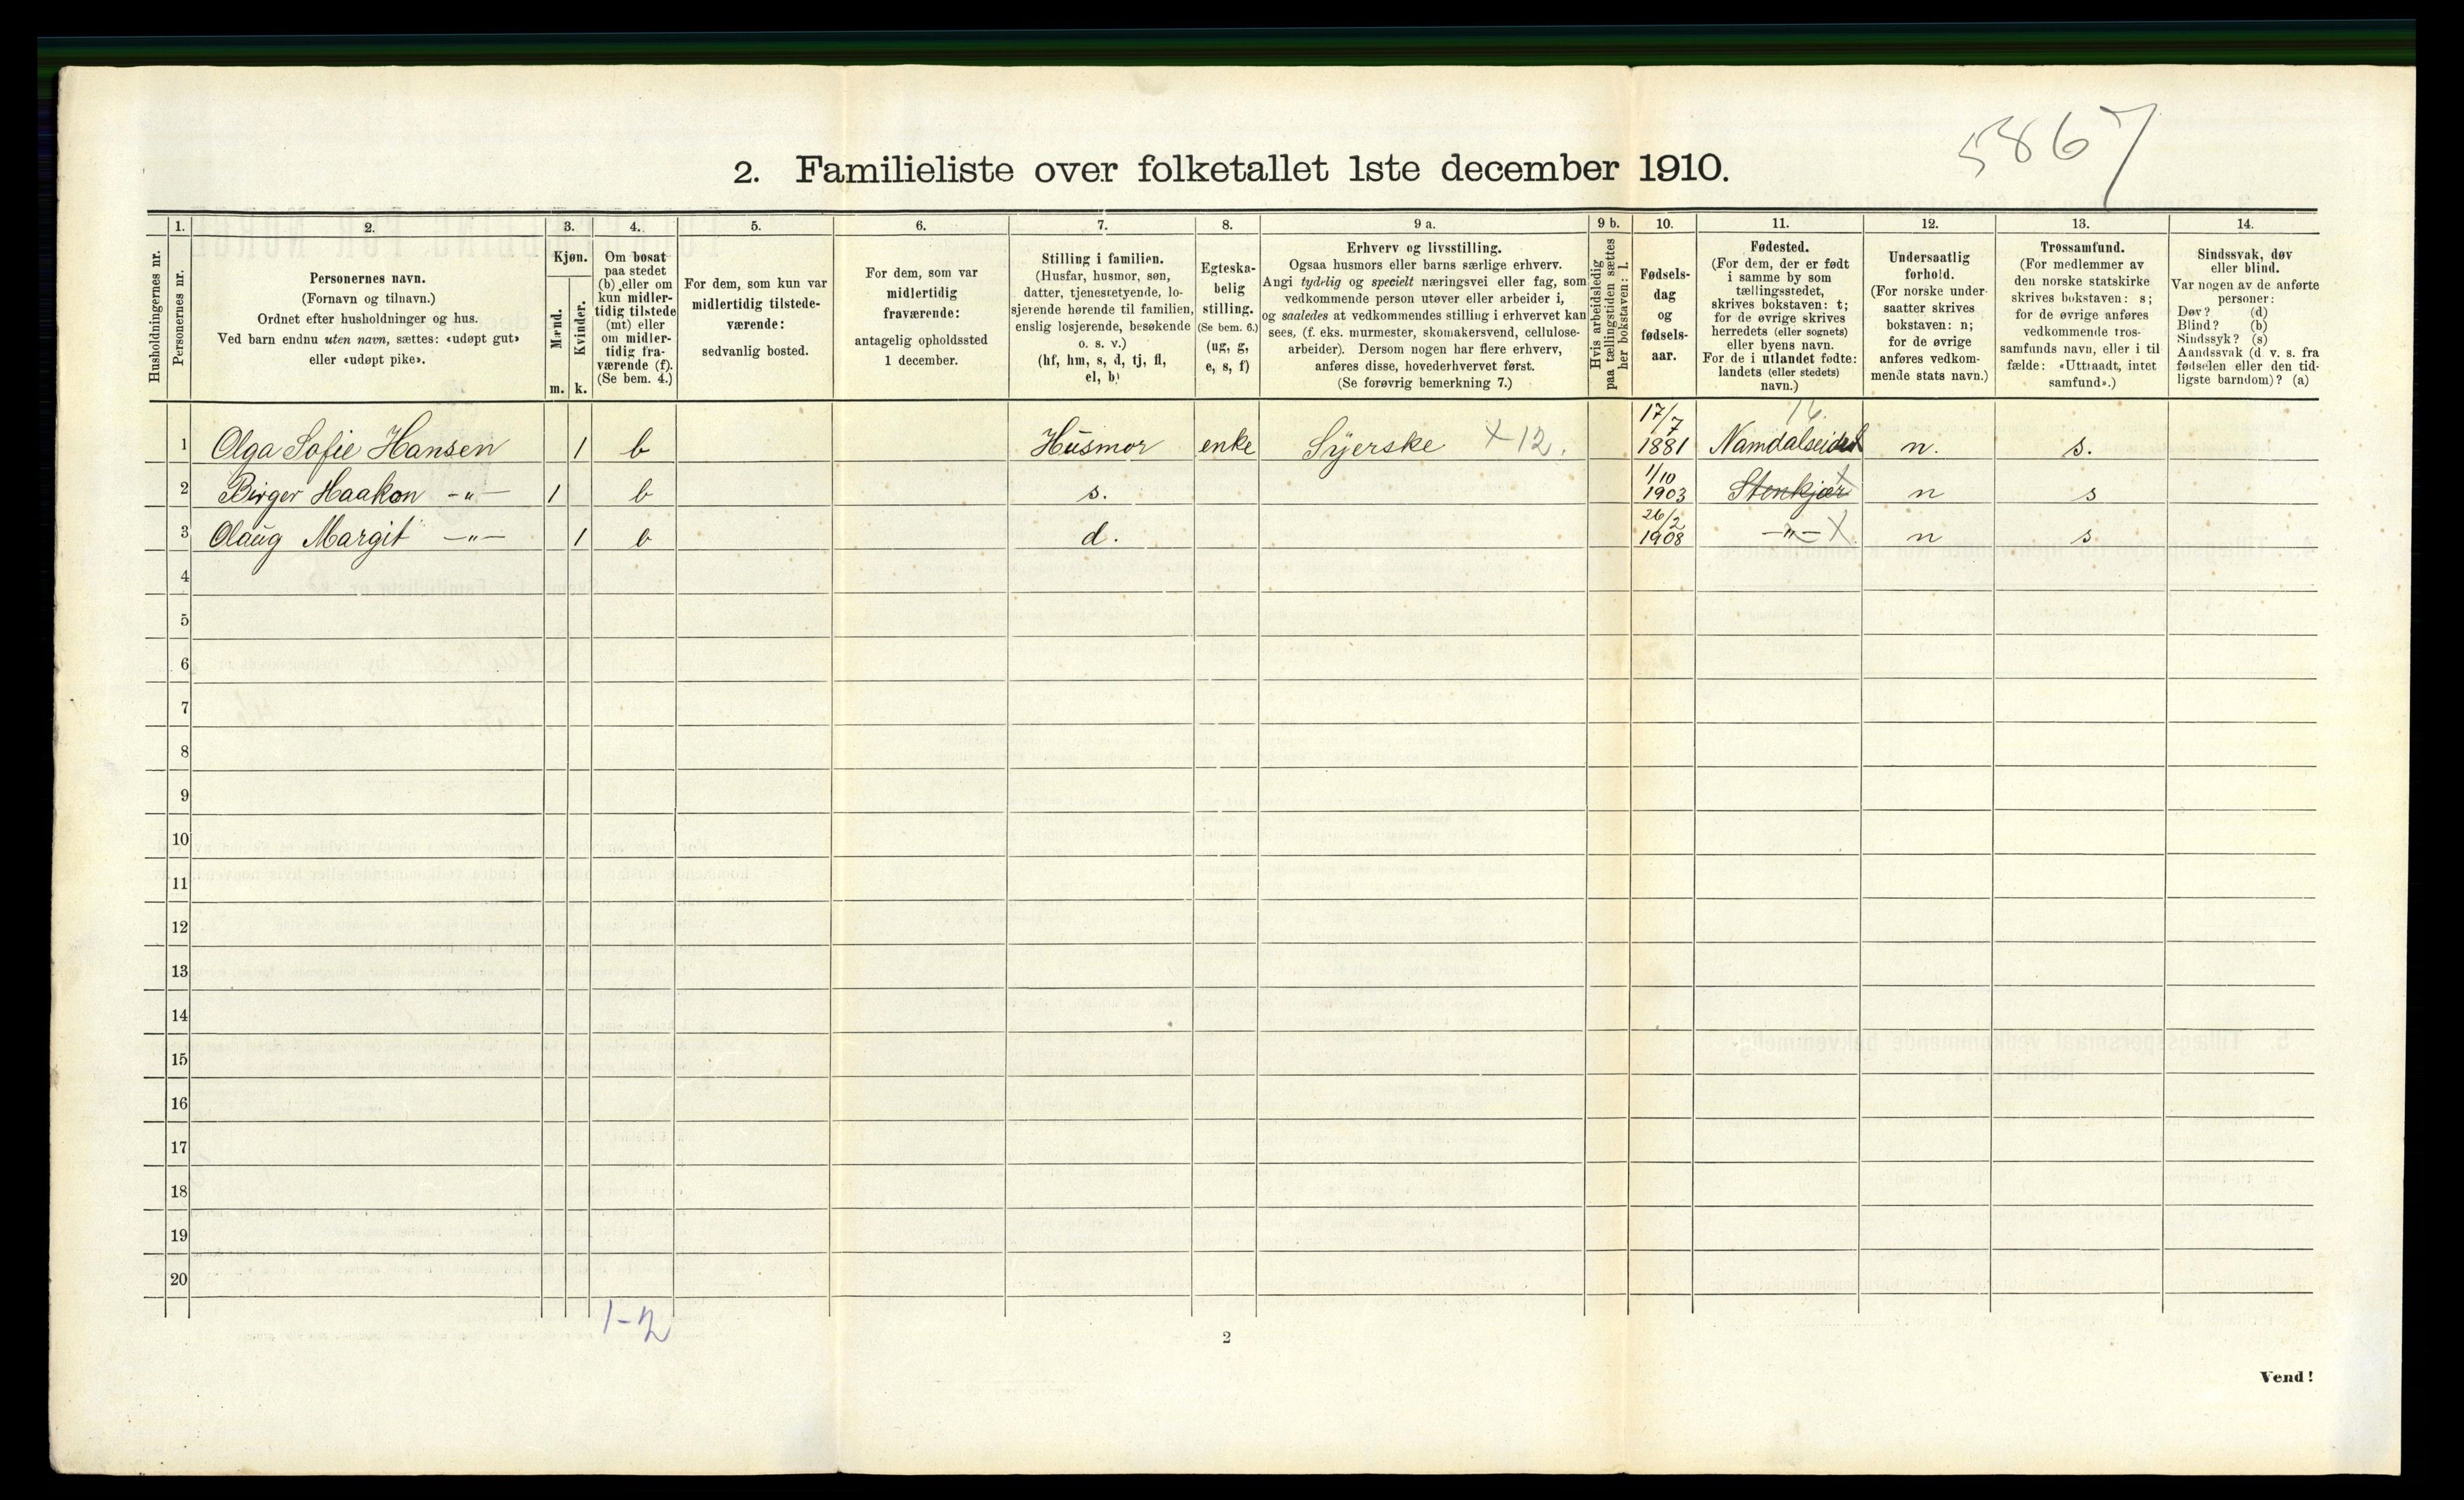 5867
2. Familieliste over folketallet 1ste december 1910.
Husholdningernes nr.
1.
Personernes nr.
2.
Personernes navn.
(Fornavn og tilnavn.)
Ordnet efter husholdninger og hus.
Ved barn endnu uten navn, sættes: «udøpt gut»
eller «udøpt pike».
3.
Kjøn.
Mænd.
Kvinder.
m. k.
4.
Om bosat
paa stedet
(b) eller om
kun midler-
tidig tilstede
(mt) eller
om midler-
tidig fra-
værende (f).
(Se bem. 4.)
5.
For dem, som kun var
midlertidig tilstede-
værende:
sedvanlig bosted.
6.
For dem, som var
midlertidig
fraværende:
antagelig opholdssted
1 december.
7.
Stilling i familien.
(Husfar, husmor, søn,
datter, tjenestetyende, lo-
sjerende hørende til familien,
enslig losjerende, besøkende
o. s. v.)
(hf, hm, s, d, tj, fl,
el, b)
8.
Egteska-
belig
stilling.
(Se bem. 6.)
(ug, g,
e, s, f)
9 a.
Erhverv og livsstilling.
Ogsaa husmors eller barns særlige erhverv.
Angi tydelig og specielt næringsvei eller fag, som
vedkommende person utøver eller arbeider i,
og saaledes at vedkommendes stilling i erhvervet kan
sees, (f. eks. murmester, skomakersvend, cellulose-
arbeider). Dersom nogen har flere erhverv,
anføres disse, hovederhvervet først.
(Se forøvrig bemerkning 7.)
9 b.
Hvis arbeidsledig
paa tællingstiden sættes
her bokstaven: l.
10.
Fødsels-
dag
og
fødsels-
aar.
11.
Fødested.
(For dem, der er født
i samme by som
tællingsstedet,
skrives bokstaven: t;
for de øvrige skrives
herredets (eller sognets)
eller byens navn.
For de i utlandet fødte:
landets (eller stedets)
navn.)
12.
Undersaatlig
forhold.
(For norske under-
saatter skrives
bokstaven: n;
for de øvrige
anføres vedkom-
mende stats navn.)
13.
Trossamfund.
(For medlemmer av
den norske statskirke
skrives bokstaven: s;
for de øvrige anføres
vedkommende tros-
samfunds navn, eller i til-
fælde: «Uttraadt, intet
samfund».)
14.
Sindssvak, døv
eller blind.
Var nogen av de anførte
personer:
Døv? (d)
Blind? (b)
Sindssyk? (s)
Aandssvak (d. v. s. fra
fødselen eller den tid-
ligste barndom)? (a)
1 Olga Sofie Hansen 1 b Husmor enke Syerske X 12. 17/7 1881 Namdalseidet n. s.
2 Birger Haakon -"- 1 b s. 1/10 1903 Stenkjær X n s
3 Olaug Margit -"- 1 b d. 26/2 1908 -"- X n s
4
5
6
7
8
9
10
11
12
13
14
15
16
17
18
19
20
1-2
2
Vend!